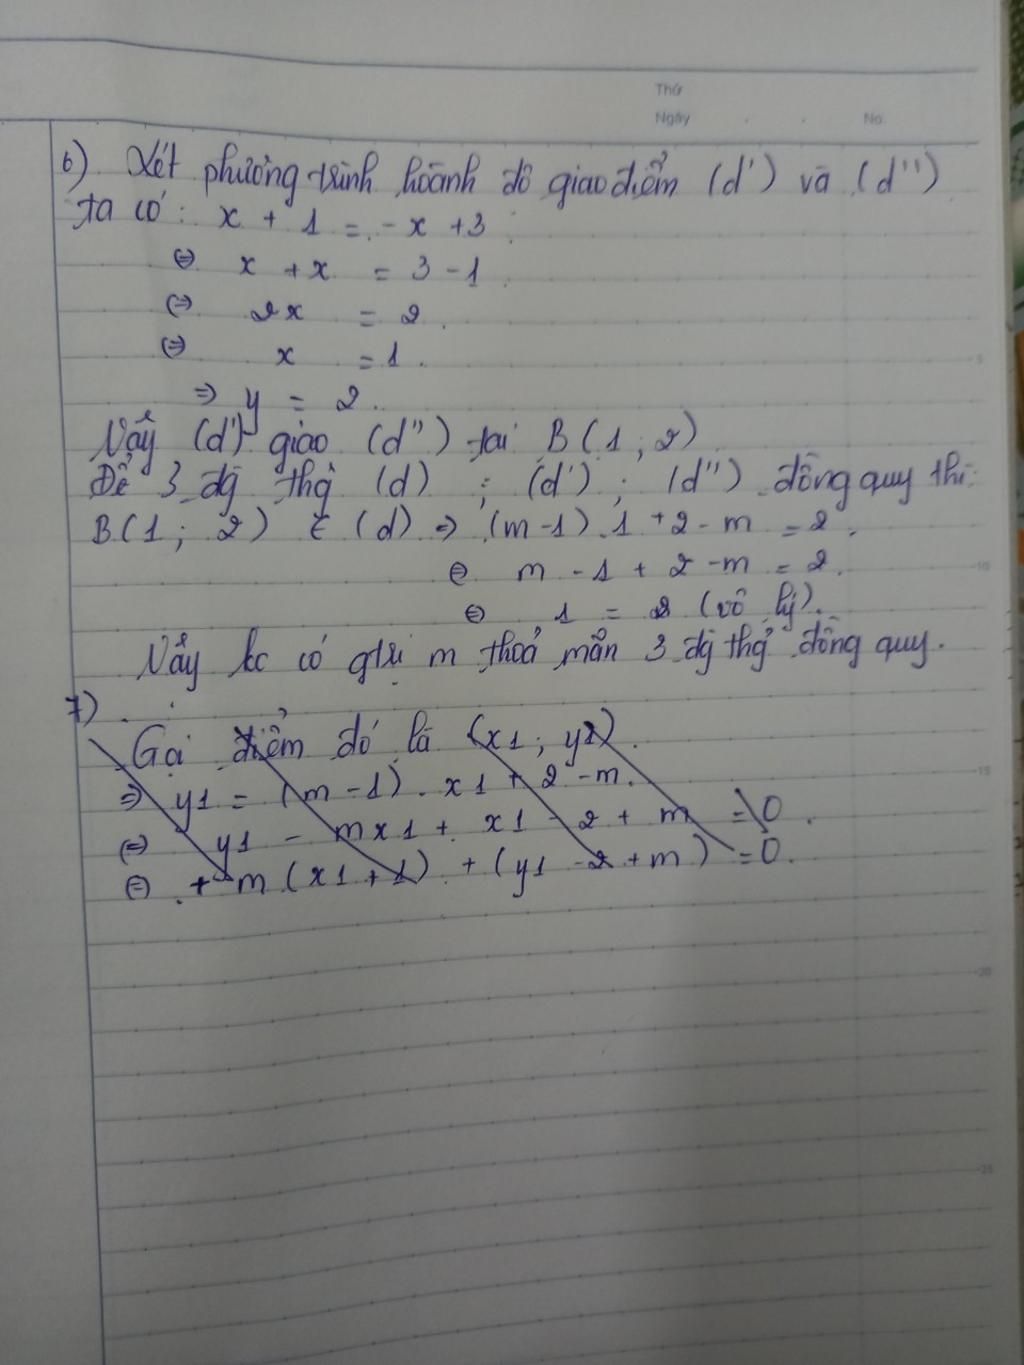 Thứ
Ngày . . No.
6) Xét phương trình hoành độ giao điểm (d') và (d'')
ta có: x + 1 = -x +3
⇔ x + x = 3 - 1
⇔ 2x = 2
⇔ x = 1.
⇒ y = 2.
Vậy (d') giao (d'') tại B(1; 2)
Để 3 đg thg (d) ; (d') ; (d'') đồng quy thì:
B(1; 2) ∈ (d) ⇒ (m-1).1 + 2 - m = 2.
⇔ m - 1 + 2 - m = 2.
⇔ 1 = 2 (vô lý).
Vậy kc có gtrị m thoả mãn 3 đg thg đồng quy.
7)
Gọi điểm đó là (x1; y1)
⇒ y1 = (m-1). x1 + 2 - m.
⇔ y1 - mx1 + x1 - 2 + m = 0.
⇔ + m (x1 + 1) + (y1 - 2 + m) = 0.
5
10
15
20
25